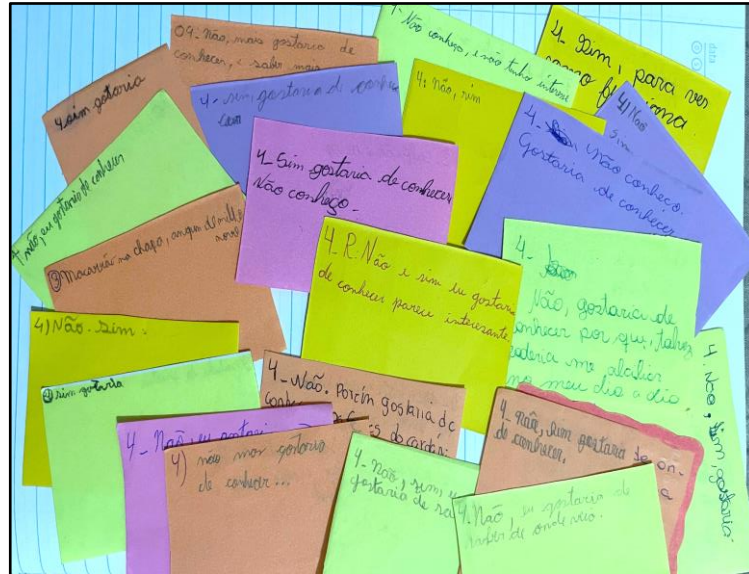 data
04- Não, mais gostaria de
conhecer, e saber mais
4- Não conheço, e não tenho interesse
4- Sim, para ver
como funciona.
4 sim gotaria
4- sim gostaria de conhecer
4: não, sim
4) Não
sim
4- Não conheço.
Gostaria de conhecer
4- Sim gostaria de conhecer
Não conheço.
não, eu gostaria de conhecer
Macarrão na chapa, angu de milho
4- R: Não e sim eu gostaria
de conhecer parece interesante
4-
Não, gostaria de
conhecer por que, talvez
poderia me
no meu dia a dia.
4) Não. Sim.
sim gotaria
4- Não. Porém gostaria de
do cardá
4- Não, eu gostari
4) não mas gostaria
de conhecer...
4- Não, sim, e
gostaria de sa
4. Não, sim gostaria
de conhecer.
4. Não, sim, gostaria.
4. Não, eu gostaria de
saber de onde veio.